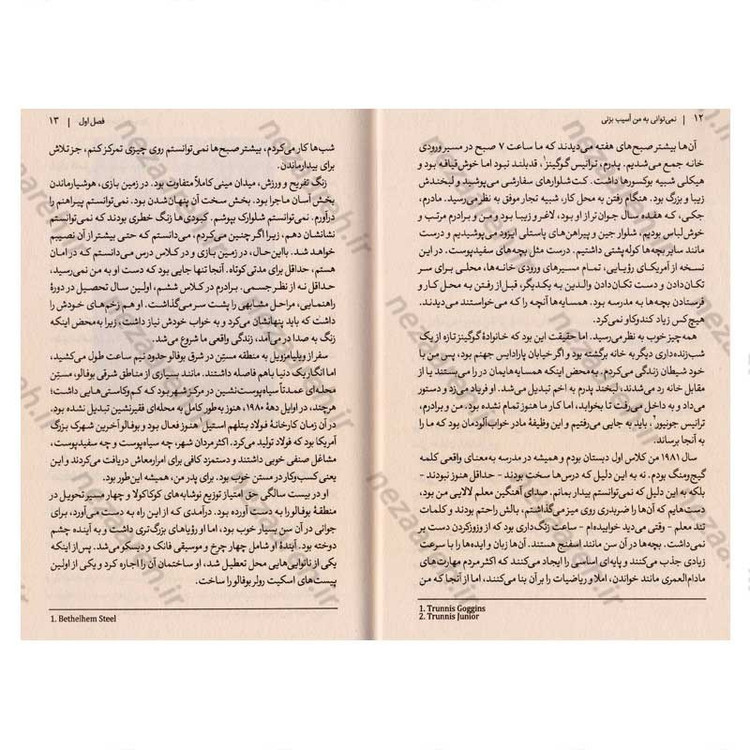 ۱۲ | نمی‌توانی به من آسیب بزنی
آن‌ها بیشتر صبح‌های هفته می‌دیدند که ما ساعت ۷ صبح در مسیر ورودی
خانه جمع می‌شدیم. پدرم، ترانیس گوگینز۱، قدبلند نبود اما خوش‌قیافه بود و
هیکلی شبیه بوکسورها داشت. کت‌شلوارهای سفارشی می‌پوشید و لبخندش
زیبا و بزرگ بود. هنگام رفتن به محل کار، شبیه تجار موفق به نظر می‌رسید. مادرم،
جکی، که هفده سال جوان‌تر از او بود، لاغر و زیبا بود و من و برادرم مرتب و
خوش‌لباس بودیم، شلوار جین و پیراهن‌های پاستلی ایزود می‌پوشیدیم و درست
مانند سایر بچه‌ها کوله‌پشتی داشتیم. درست مثل بچه‌های سفیدپوست. در این
نسخه از آمریکای رؤیایی، تمام مسیرهای ورودی خانه‌ها، محلی برای سر
تکان‌دادن و دست تکان‌دادن والدین به یکدیگر، قبل‌از رفتن به محل کار و
فرستادن بچه‌ها به مدرسه بود. همسایه‌ها آنچه را که می‌خواستند می‌دیدند.
هیچ‌کس زیاد کندوکاو نمی‌کرد.
همه‌چیز خوب به نظر می‌رسید. اما حقیقت این بود که خانوادهٔ گوگینز تازه از یک
شب‌زنده‌داری دیگر به خانه برگشته بود و اگر خیابان پارادایس جهنم بود، پس من با
خود شیطان زندگی می‌کردم. به‌محض اینکه همسایه‌هایمان در را می‌بستند یا از
مقابل خانه رد می‌شدند، لبخند پدرم به اخم تبدیل می‌شد. او فریاد می‌زد و دستور
می‌داد و به داخل می‌رفت تا بخوابد، اما کار ما هنوز تمام نشده بود. من و برادرم،
ترانیس جونیور۲، باید به جایی می‌رفتیم و این وظیفهٔ مادر خواب‌آلودمان بود که ما را
به آنجا برساند.
سال ۱۹۸۱ من کلاس اول دبستان بودم و همیشه در مدرسه به‌معنای واقعی کلمه
گیج‌ومنگ بودم. نه به این دلیل که درس‌ها سخت بودند – حداقل هنوز نبودند –
بلکه به این دلیل که نمی‌توانستم بیدار بمانم. صدای آهنگین معلم لالایی من بود،
دست‌هایم که آن‌ها را ضربدری روی میز می‌گذاشتم، بالش راحتم بودند و کلمات
تند معلم - وقتی می‌دید خوابیده‌ام - ساعت زنگ‌داری بود که از وزوزکردن دست بر
نمی‌داشت. بچه‌ها در آن سن مانند اسفنج هستند. آن‌ها زبان و ایده‌ها را با سرعت
زیادی جذب می‌کنند و پایه‌ای اساسی را ایجاد می‌کنند که اکثر مردم مهارت‌های
مادام‌العمری مانند خواندن، املا و ریاضیات را بر آن بنا می‌کنند، اما از آنجا که من
1. Trunnis Goggins
2. Trunnis Junior
فصل اول | ۱۳
شب‌ها کار می‌کردم، بیشتر صبح‌ها نمی‌توانستم روی چیزی تمرکز کنم، جز تلاش
برای بیدارماندن.
زنگ تفریح و ورزش، میدان مینی کاملاً متفاوت بود. در زمین بازی، هوشیارماندن
بخش آسان ماجرا بود. بخش سخت آن پنهان‌شدن بود. نمی‌توانستم پیراهنم را
درآورم. نمی‌توانستم شلوارک بپوشم. کبودی‌ها زنگ خطری بودند که نمی‌توانستم
نشانشان دهم، زیرا اگر چنین می‌کردم، می‌دانستم که حتی بیشتر از آن نصیبم
خواهد شد. بااین‌حال، در زمین بازی و در کلاس درس می‌دانستم که در امان
هستم، حداقل برای مدتی کوتاه. آنجا تنها جایی بود که دست او به من نمی‌رسید،
حداقل نه از نظر جسمی. برادرم در کلاس ششم، اولین سال تحصیل در دورهٔ
راهنمایی، مراحل مشابهی را پشت سر می‌گذاشت. او هم زخم‌های خودش را
داشت که باید پنهانشان می‌کرد و به خواب خودش نیاز داشت، زیرا به‌محض اینکه
زنگ به صدا در می‌آمد، زندگی واقعی ما شروع می‌شد.
سفر از ویلیامزویل به منطقه مستن در شرق بوفالو حدود نیم ساعت طول می‌کشید،
اما انگار یک دنیا باهم فاصله داشتند. مانند بسیاری از مناطق شرقی بوفالو، مستن
محله‌ای عمدتاً سیاه‌پوست‌نشین در مرکز شهر بود که کم‌وکاستی‌هایی داشت؛
هرچند، در اوایل دههٔ ۱۹۸۰، هنوز به‌طور کامل به محله‌ای فقیرنشین تبدیل نشده بود.
در آن زمان کارخانهٔ فولاد بتلهم استیل۱ هنوز فعال بود و بوفالو آخرین شهرک بزرگ
آمریکا بود که فولاد تولید می‌کرد. اکثر مردان شهر، چه سیاه‌پوست و چه سفیدپوست،
مشاغل صنفی خوبی داشتند و دستمزد کافی برای امرارمعاش دریافت می‌کردند و این
یعنی کسب‌وکار در مستن خوب بود. برای پدر من، همیشه این‌طور بود.
او در بیست سالگی حق امتیاز توزیع نوشابه‌های کوکاکولا و چهار مسیر تحویل در
منطقهٔ بوفالو را به دست آورده بود. درآمدی که از این راه به دست می‌آورد، برای
جوانی در آن سن بسیار خوب بود، اما او رؤیاهای بزرگ‌تری داشت و به آینده چشم
دوخته بود. آیندهٔ او شامل چهار چرخ و موسیقی فانک و دیسکو می‌شد. پس‌از اینکه
یکی از نانوایی‌هایی محل تعطیل شد، او ساختمان آن را اجاره کرد و یکی از اولین
پیست‌های اسکیت رولر بوفالو را ساخت.
1. Bethelhem Steel